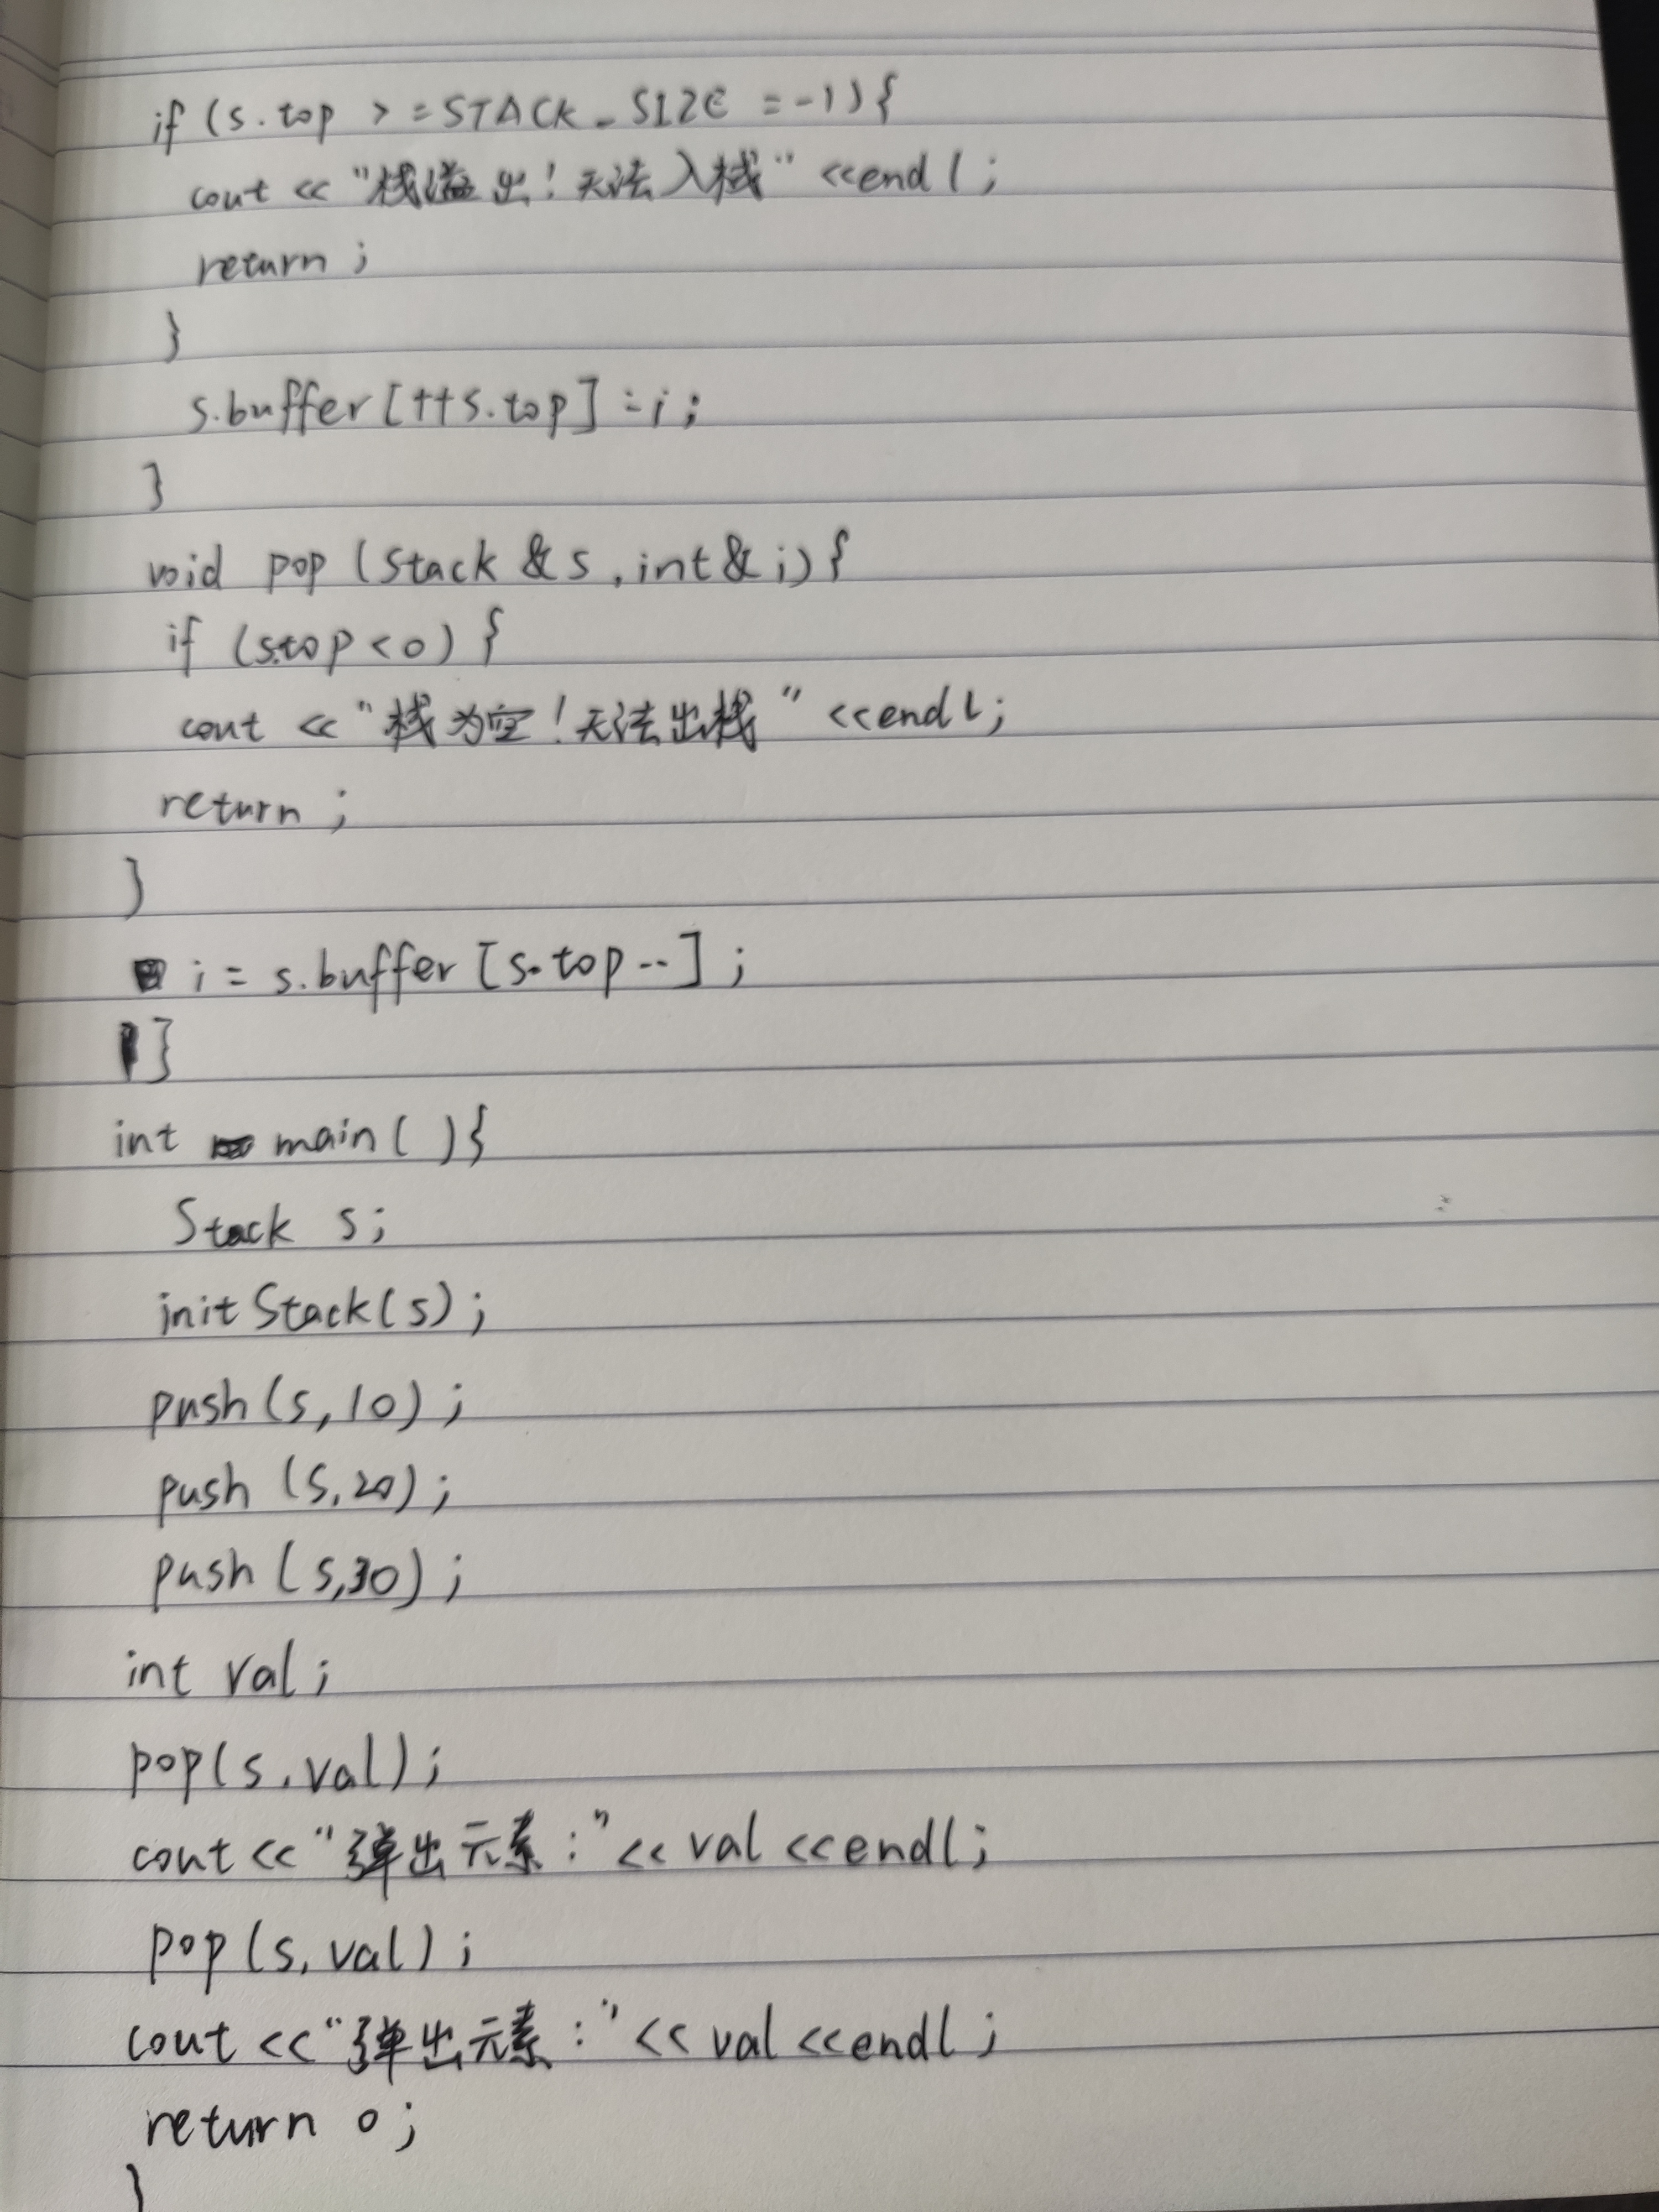 if (s.top >=STACK_SIZE =-1){
cout << "栈溢出!无法入栈" <<endl;
return;
}
s.buffer[++s.top]=i;
}
void pop (Stack &s,int&i){
if (s.top<0) {
cout << "栈为空!无法出栈" <<endl;
return;
}
i = s.buffer[s.top--];
}
int main( ){
Stack s;
initStack(s);
push(s,10);
push (s,20);
push (s,30);
int val;
pop(s,val);
cout << "弹出元素:" << val <<endl;
pop(s,val);
cout << "弹出元素:" << val <<endl;
return 0;
}